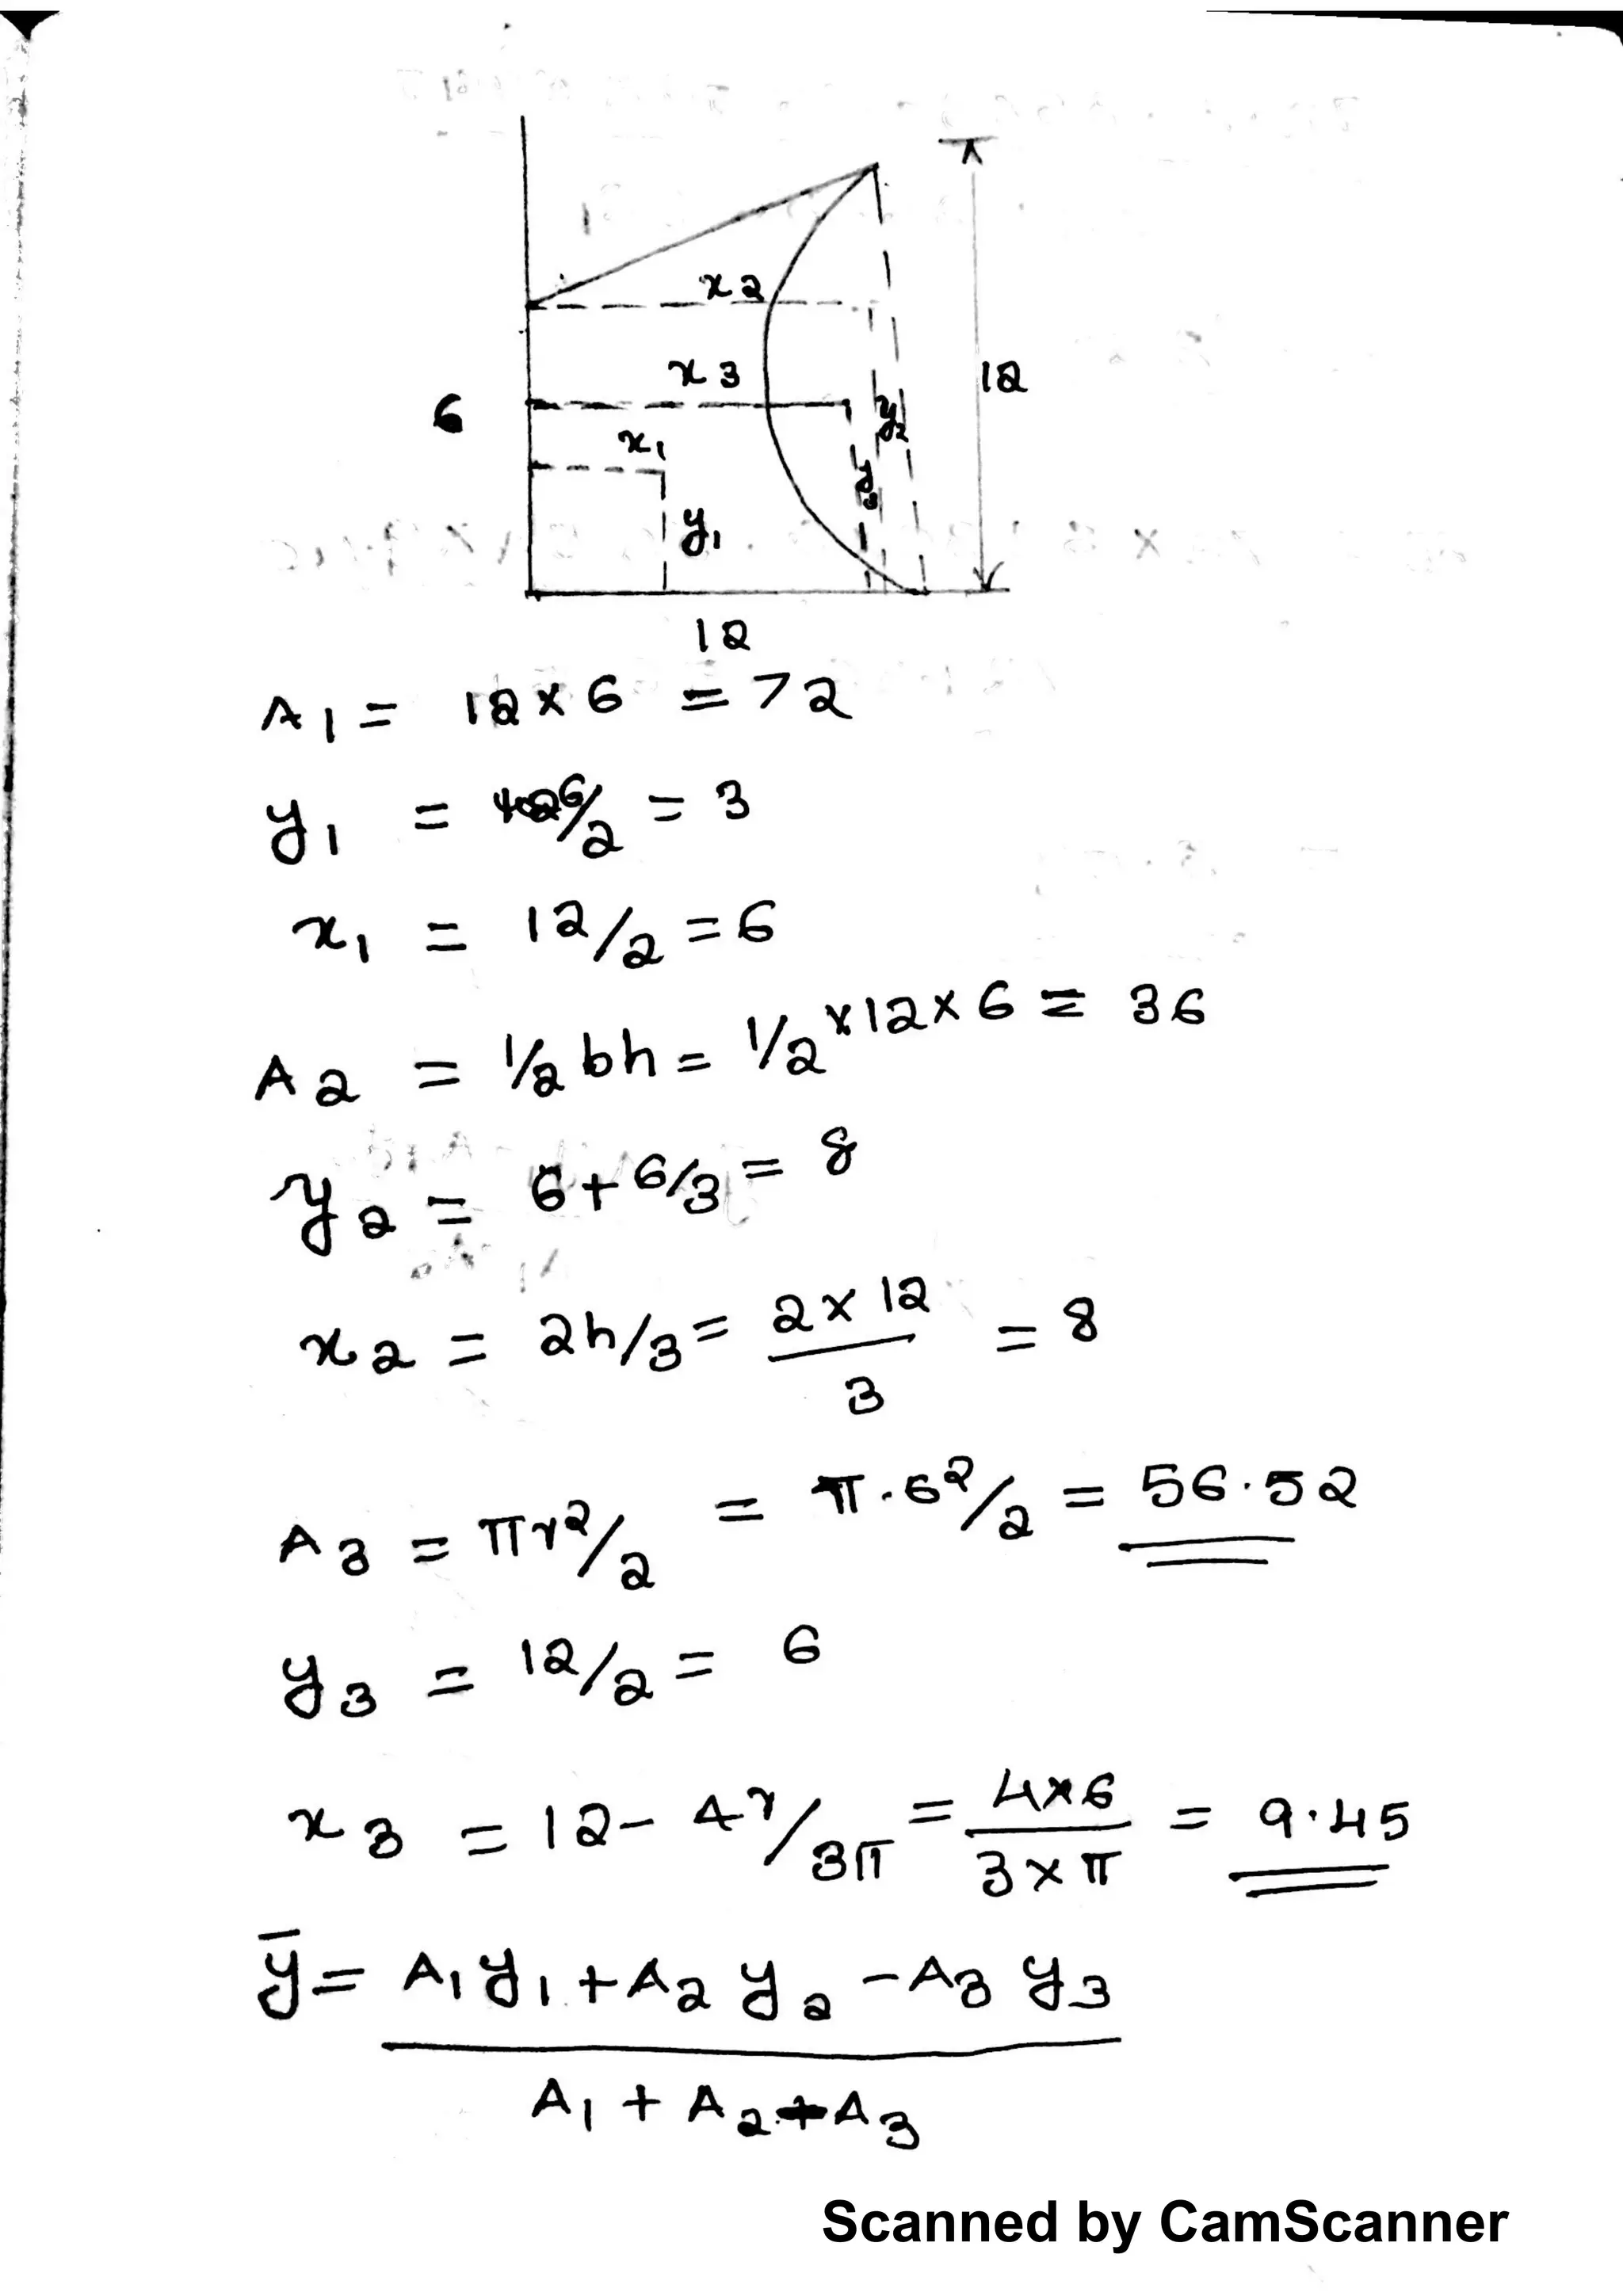 x2
x3
6
12
y2
x1
y3
y1
12
A1 = 12×6 = 72
y1 = 6/2 = 3
x1 = 12/2 = 6
A2 = 1/2 bh = 1/2×12×6 = 36
y2 = 6+6/3 = 8
x2 = 2h/3 = 2×12/3 = 8
A3 = πr²/2 = π.6²/2 = 56.52
y3 = 12/2 = 6
x3 = 12 - 4r/3π = 4×6/3×π = 9.45
ȳ = A1y1+A2y2-A3y3
A1+A2+A3
Scanned by CamScanner